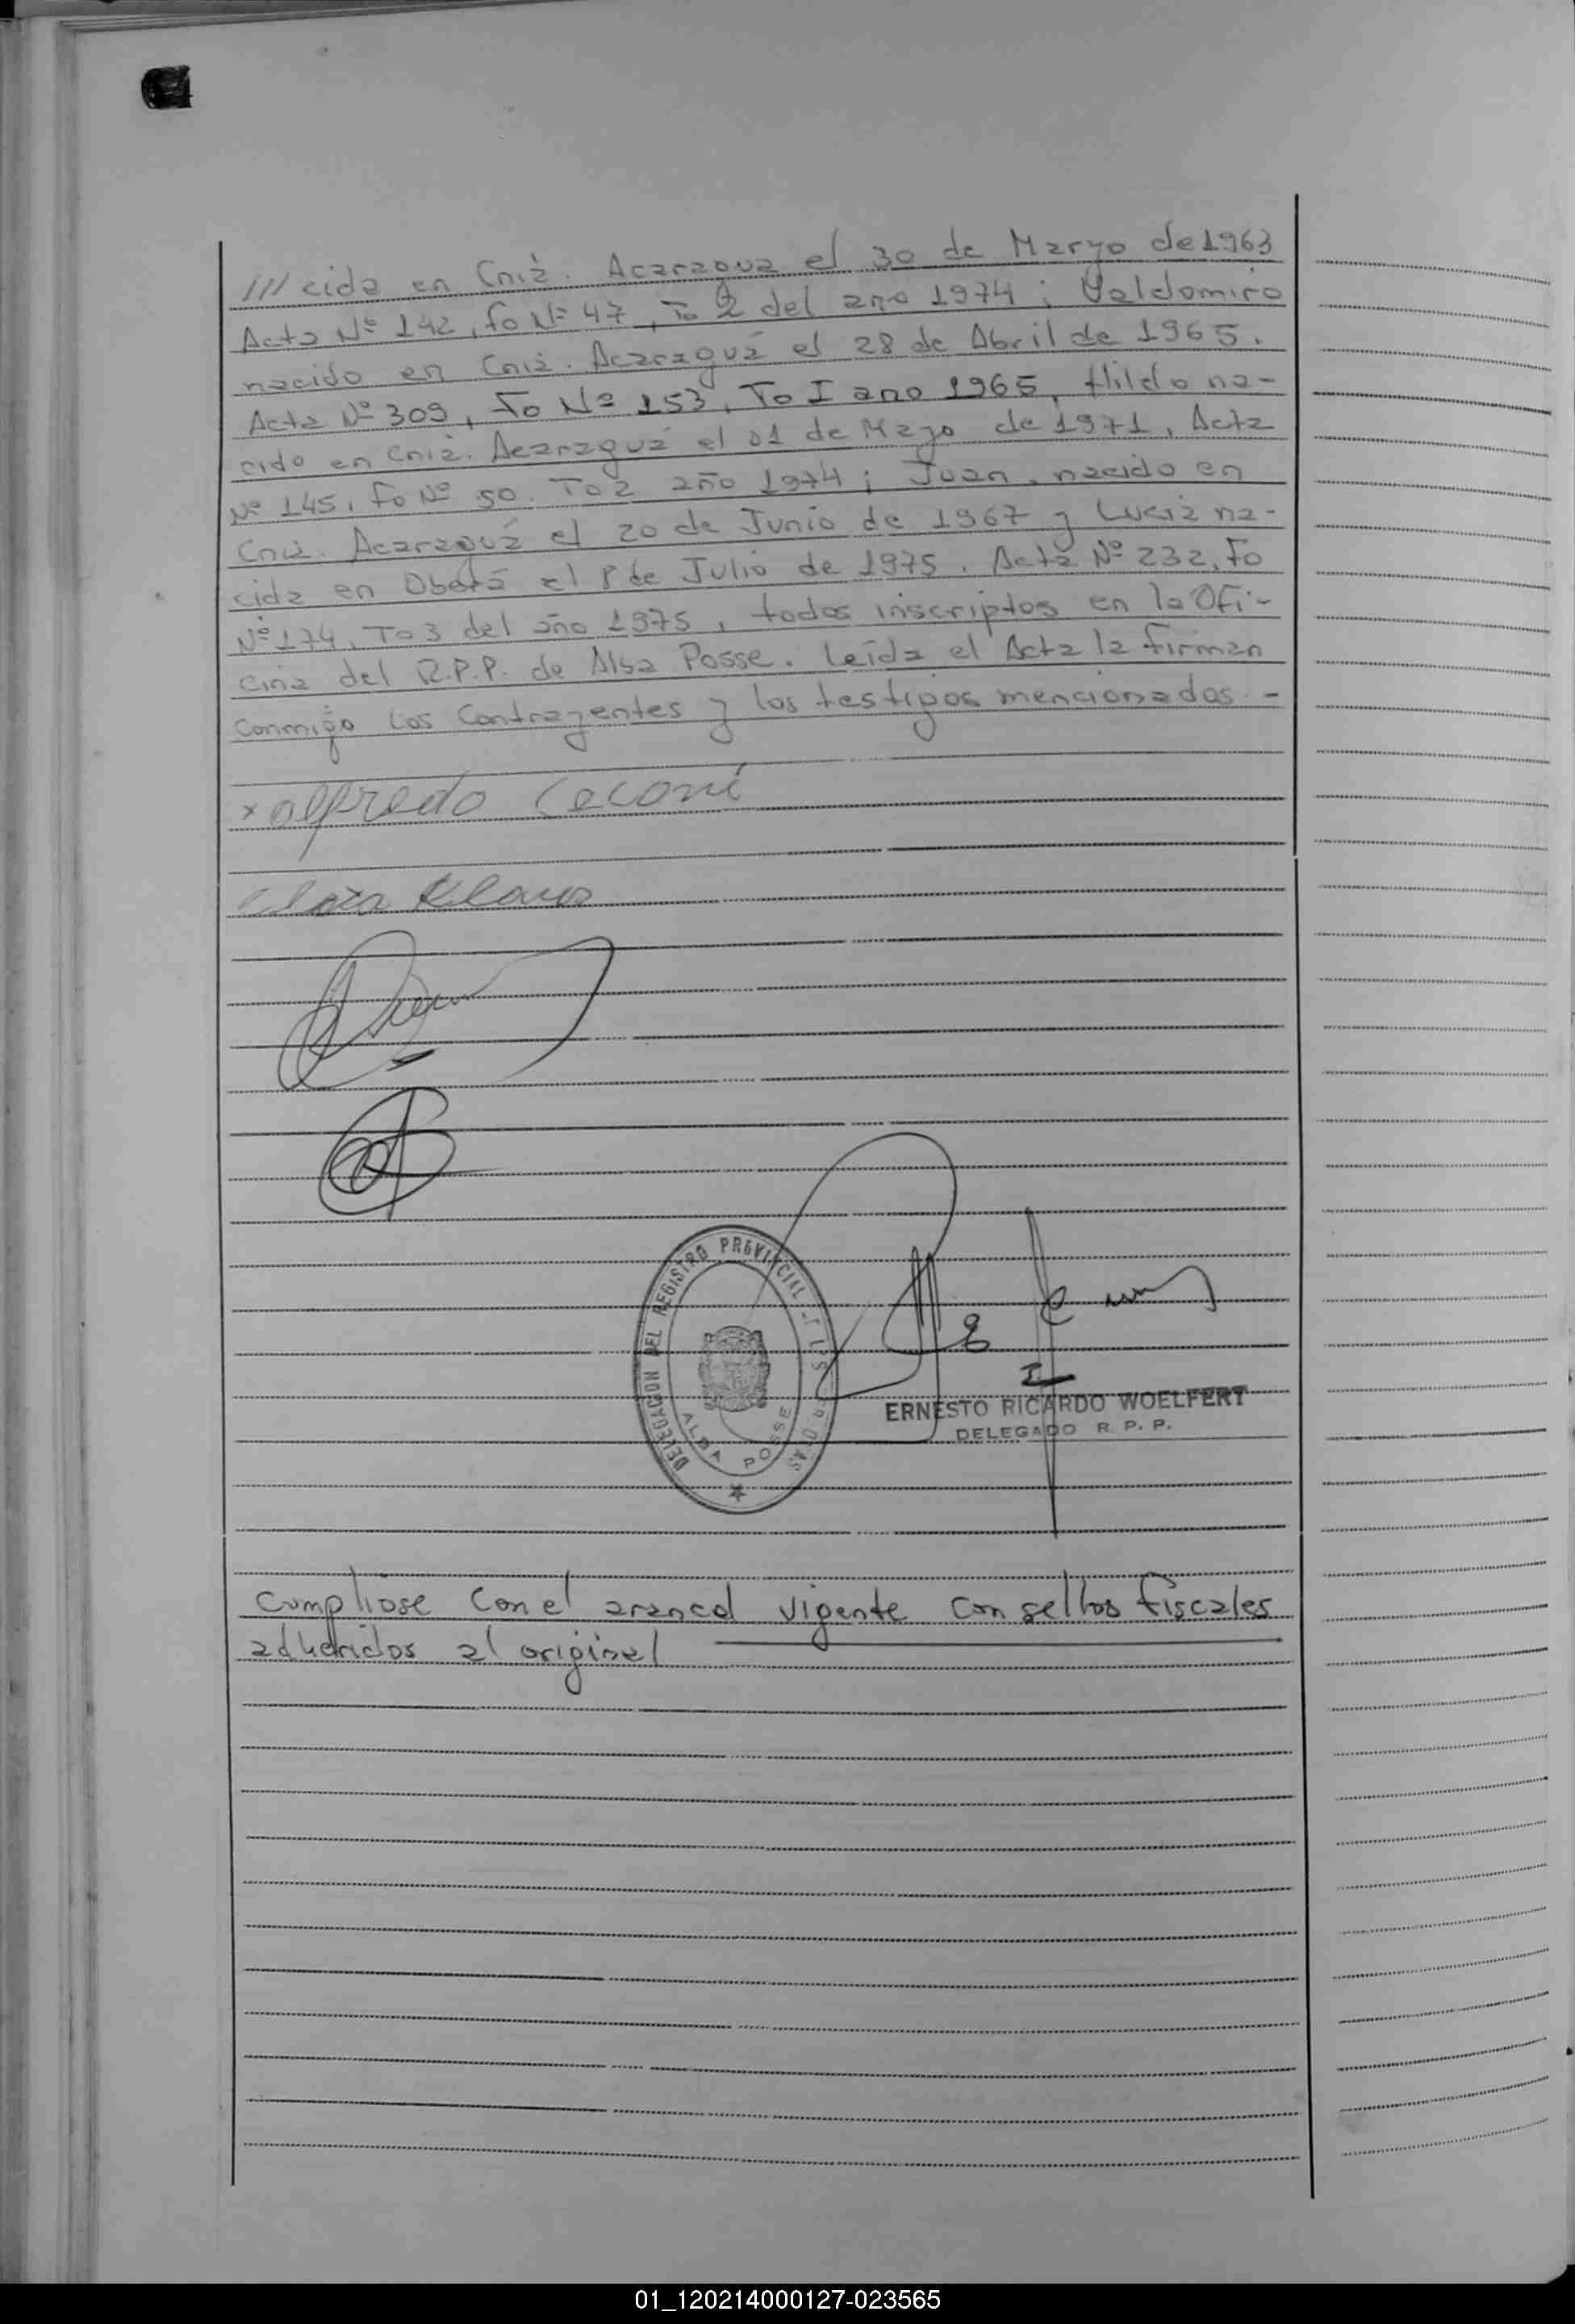 /// cida en Cnia. Acaragua el 30 de Marzo de 1963
Acta Nº 142, fo Nº 47, To 2 del año 1974; Valdomiro
nacido en Cnia. Acaraguá el 28 de Abril de 1965.
Acta Nº 309, Fo Nº 153, To I ano 1965, Hildo na-
cido en Cnia. Acaraguá el 01 de Mayo de 1971, Acta
Nº 145, Fo Nº 50. To 2 año 1974; Juan, nacido en
Cnia. Acaraguá el 20 de Junio de 1967 y Lucia na-
cida en Oberá el 8 de Julio de 1975. Acta Nº 232, Fo
Nº 174, To 3 del año 1975, todos inscriptos en la Ofi-
cina del R.P.P. de Alba Posse. Leída el Acta la firman
conmigo los Contrayentes y los testigos mencionados. -
x alfredo Ceconi
DELEGACION DEL REGISTRO PROVINCIAL
ALBA POSSE
ERNESTO RICARDO WOELFERT
DELEGADO R. P. P.
Cumpliose con el arancel vigente con sellos fiscales
adheridos al original
01_120214000127-023565